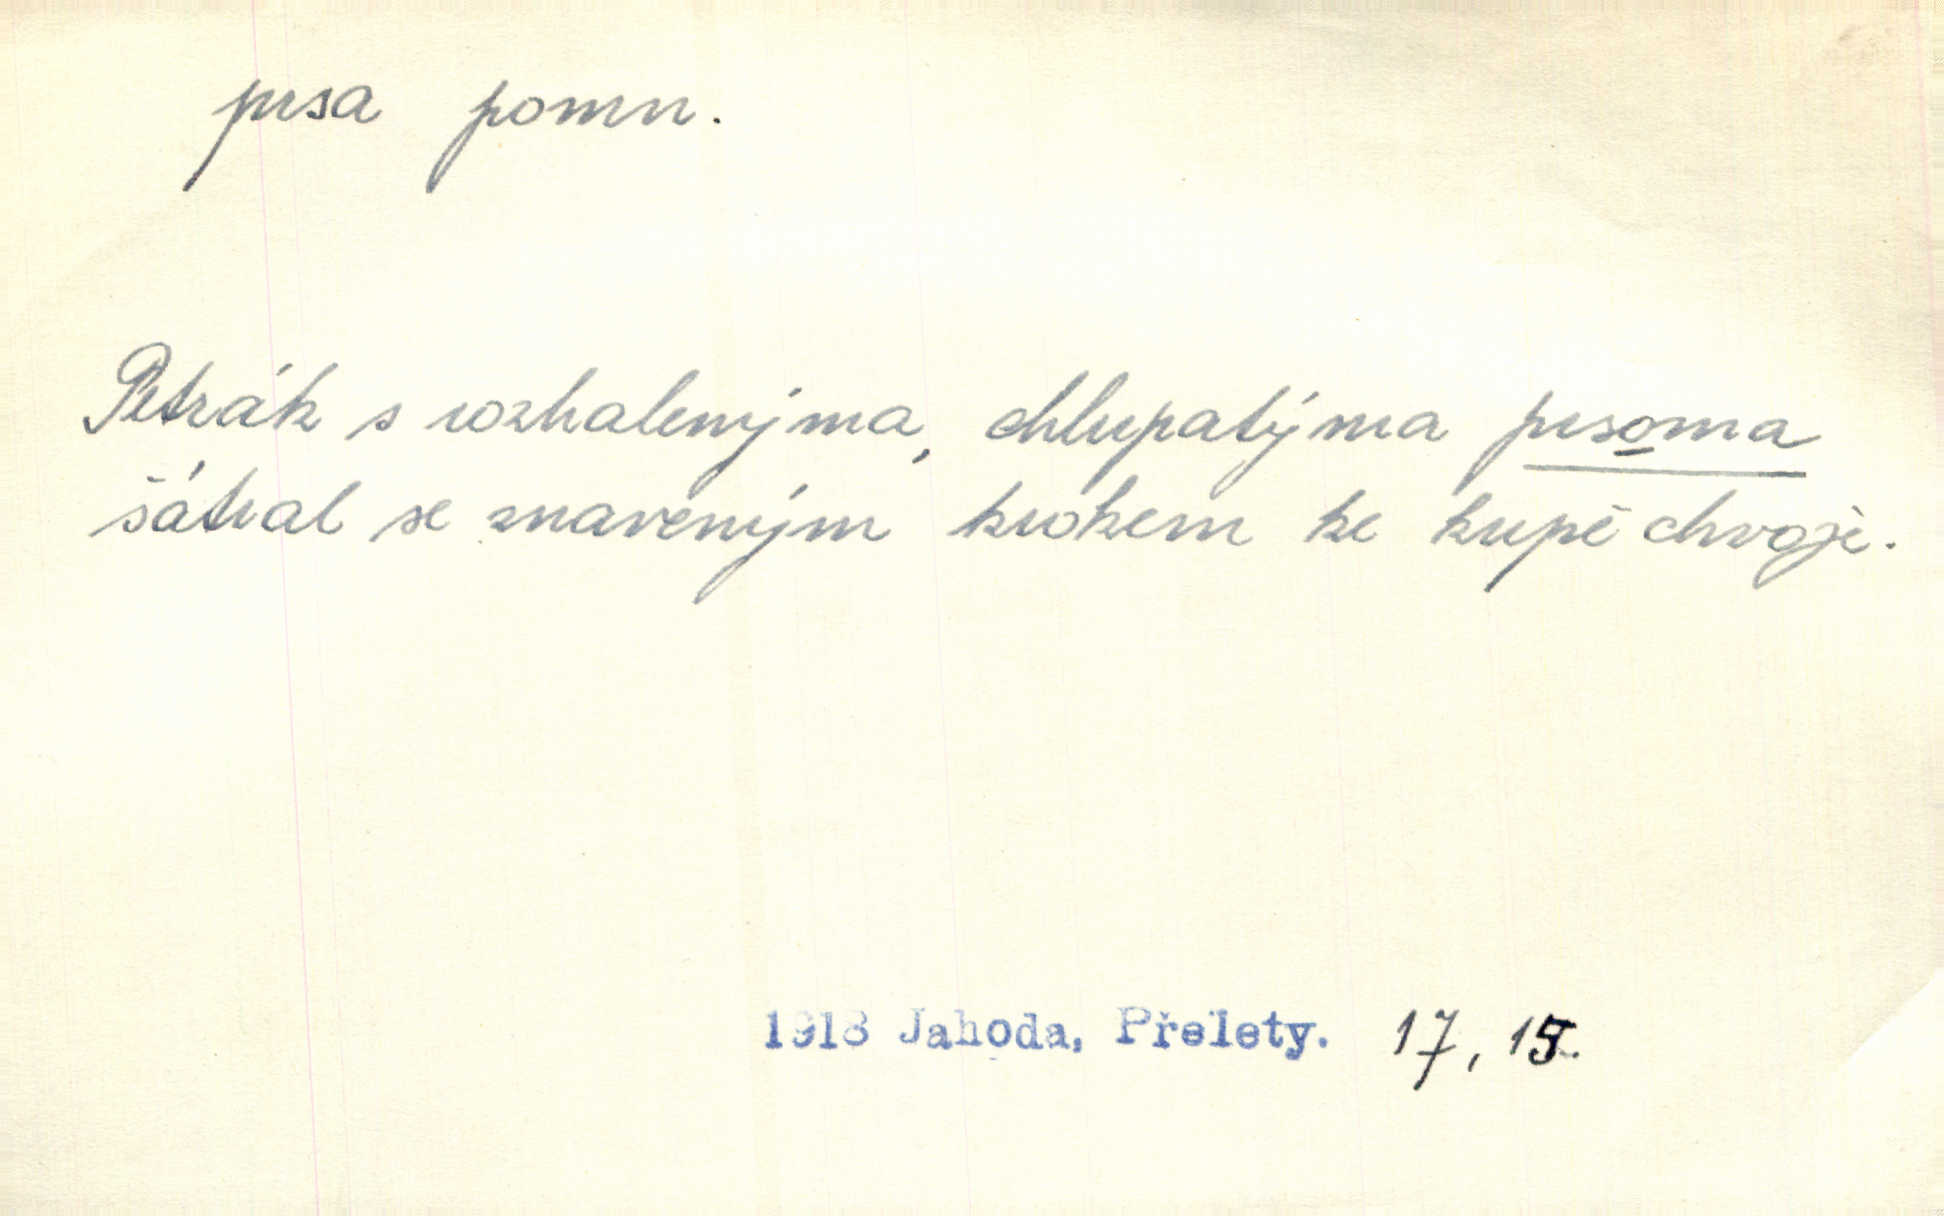 prsa pomn.
Petrák s rozhalenýma, chlupatýma prsoma
šátral se znaveným krokem ke kupě chvoje.
1918 Jahoda, Přelety. 17, 15.